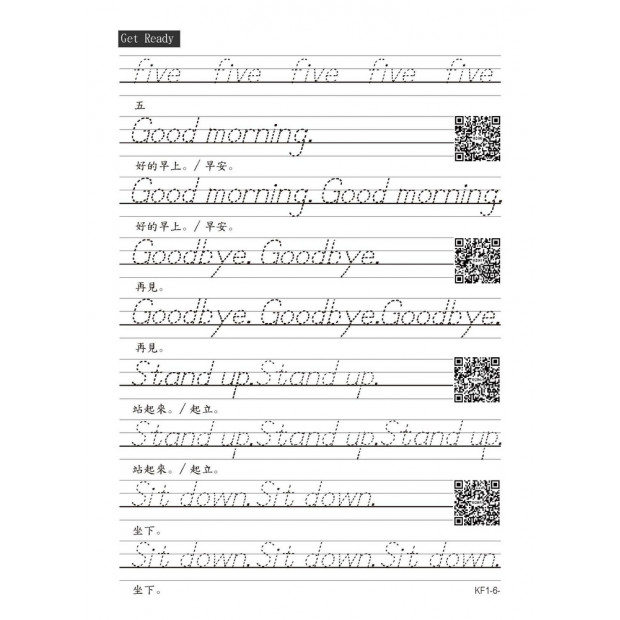 Get Ready
five five five five five
五
Good morning.
好的早上。/ 早安。
Good morning. Good morning.
好的早上。/ 早安。
Goodbye. Goodbye.
再見。
Goodbye. Goodbye. Goodbye.
再見。
Stand up. Stand up.
站起來。/ 起立。
Stand up. Stand up. Stand up.
站起來。/ 起立。
Sit down. Sit down.
坐下。
Sit down. Sit down. Sit down.
坐下。
KF1-6-